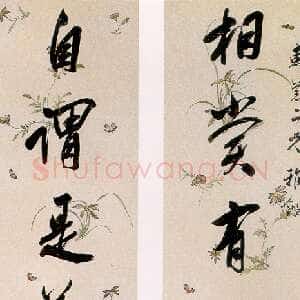 相賞有
自謂是
Shufawang.CN